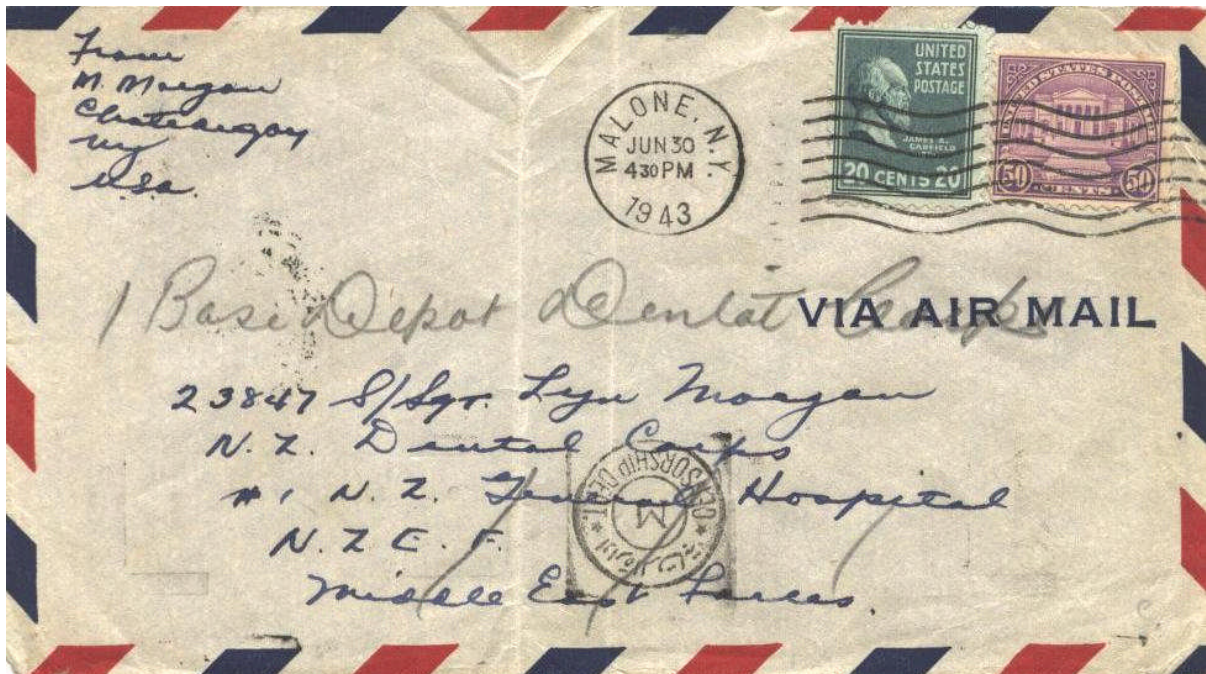 From
M. Morgan
Chateaugay
NY
USA.
MALONE, N.Y.
JUN 30
4 30 PM
1943
UNITED
STATES
POSTAGE
JAMES A.
GARFIELD
20 CENTS 20
UNITED STATES POSTAGE
50 CENTS 50
1 Base Depot Dental Corps
VIA AIR MAIL
23847 S/Sgt. Lyn Morgan
N.Z. Dental Corps
#1 N.Z. General Hospital
N.Z E.F.
Middle East Forces.
CENSORSHIP DEPT.